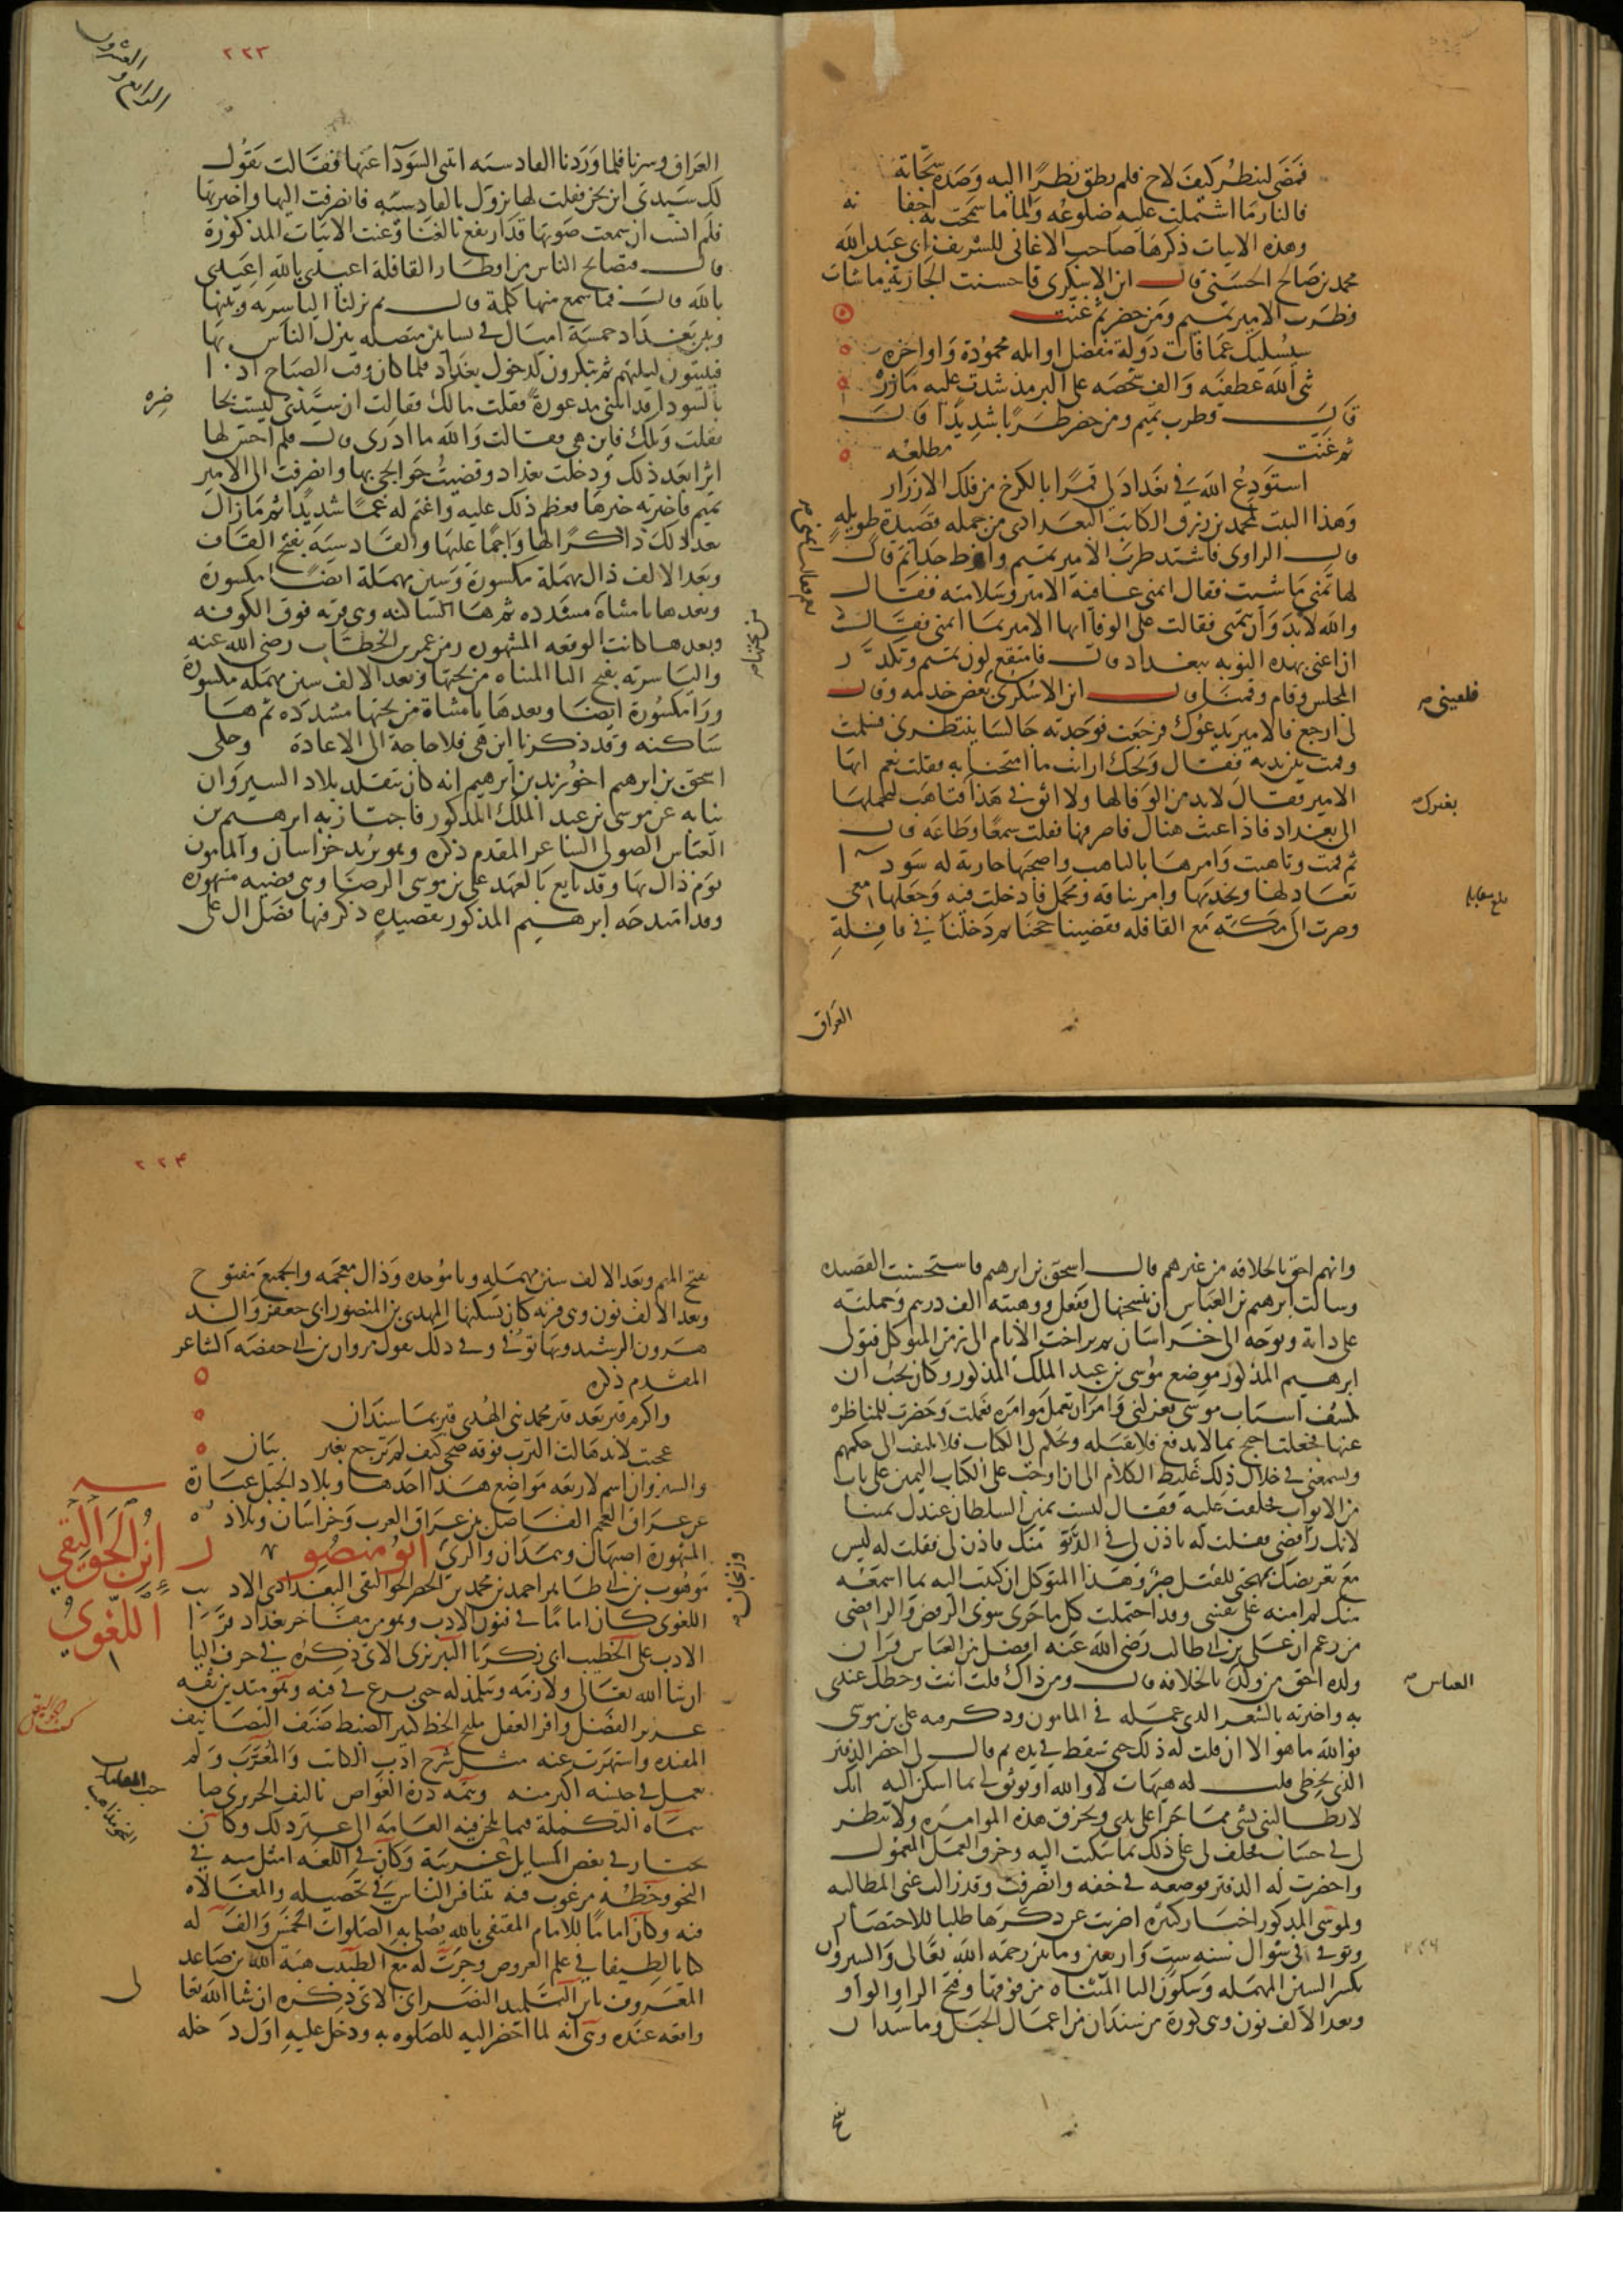 فمضى لينظر كيف لاح فلم يطق نظرا اليه وصده سجانه
فالنار ما اشتملت عليه ضلوعه والما ما سمحت به اجفانه
وهذه الابيات ذكرها صاحب الاغاني للشريف ابي عبد الله
محمد بن صالح الحسني قال ابن الاشكري فاحسنت الجارية ما شات
وطرب الامير تميم ومن حضر ثم غنت
سيسليك عما فات دولة مفضل اوايله محمودة واواخره
ثنى الله عطفيه والف شخصه على البر مذ شدت عليه مازره
قال وطرب تميم ومن حضر طربا شديدا قال
ثم غنت مطلعه
استودع الله في بغداد لي قمرا بالكرخ من فلك الازرار
وهذا البيت لمحمد بن زريق الكاتب البغدادي من جملة قصيدة طويلة
قال الراوي فاشتد طرب الامير تميم وافرط جدا ثم قال
لها تمني ما شيت فقال اتمنى عافية الامير وسلامته فقال
والله لابد وان تتمني فقالت على الوفا ايها الامير بما اتمنى فقال
ان اغني بهذه النوبة ببغداد قال فامتقع لون تميم وتكدر
المجلس وقام وقمنا قال ابن الاشكري بعض خدمه وقال
لي ارجع فالامير يدعوك فرجعت فوجدته جالسا ينتظرني فسلمت
وقمت بين يديه فقال ويحك ارايت ما امتحنا به فقلت نعم ايها
الامير فقال لابد من الوفا لها ولا اثق في هذا فتاهب لتحملها
الى بغداد فاذا غنت هناك فاصرفها فقلت سمعا وطاعة قال
ثم قمت وتاهبت وامرها بالتاهب واصحبها جارية له سودا
تعادلها وتخدمها وامر بناقة ومحمل فادخلت فيه وجعلها معي
وصرت الى مكة مع القافلة فقضينا حجنا ثم دخلنا في قافلة
فلقيني
بغيرك
العراق
٢٢٣
الرابع والعشرون
العراق وسرنا فلما وردنا القادسية اتتني السودا عنها فقالت تقول
لك سيدتي اين نحن فقلت لها نزول بالقادسية فانصرفت اليها واخبرتها
فلم انشب ان سمعت صوتها قد ارتفع بالغنا وغنت الابيات المذكورة
قال فتصايح الناس من اقطار القافلة اعيدي بالله اعيدي
بالله قال فما سمع منها كلمة قال ثم نزلنا الياسرية وبينها
وبين بغداد خمسة اميال في بساتين متصلة ينزل الناس بها
فيبيتون ليلتهم ثم يبكرون لدخول بغداد فلما كان وقت الصباح اذا
بالسودا قد اتتني مذعورة فقلت مالك فقالت ان سيدتي ليست بحا
ضره
فقلت ويلك فاين هي فقالت والله ما ادري قال فلم احس لها
اثرا بعد ذلك ودخلت بغداد وقضيت حوايجي بها وانصرفت الى الامير
تميم فاخبرته خبرها فعظم ذلك عليه واغتم له غما شديدا ثم ما زال
بعد ذلك ذاكرا لها واجما عليها والقادسية بفتح القاف
وبعد الالف دال مهملة مكسورة وسين مهملة ايضا مكسورة
وبعدها يا مثناة مشددة ثم هاء ساكنة وهي قرية فوق الكوفة
وبعدها كانت الوقعة المشهورة زمن عمر بن الخطاب رضي الله عنه
من تحتها
والياسرية بفتح اليا المثناة من تحتها وبعد الالف سين مهملة مكسورة
ورا مكسورة ايضا وبعدها يا مثناة من تحتها مشددة ثم هاء
ساكنة وقد ذكرنا اين هي فلا حاجة الى الاعادة وحكى
اسحق بن ابرهيم اخو زيد بن ابرهيم انه كان يتقلد بلاد السيروان
نيابة عن موسى بن عبد الملك المذكور فاجتاز به ابرهيم بن
العباس الصولي الشاعر المقدم ذكره وهو يريد خراسان والمامون
يومئذ بها وقد بايع بالعهد علي بن موسى الرضا وهي قضية مشهورة
وقد امتدحه ابرهيم المذكور بقصيدة ذكر فيها فضل ال علي
وانهم احق بالخلافة من غيرهم قال اسحق بن ابرهيم فاستحسنت القصيدة
وسالت ابرهيم بن العباس ان ينسخها لي ففعل ووهبته الف درهم وحملته
على دابة وتوجه الى خراسان ثم تراخت الايام الى زمن المتوكل فتولى
ابرهيم المذكور موضع موسى بن عبد الملك المذكور وكان يحب ان
يكشف اسباب موسى فعزلني وامر ان تعمل موامره فعملت وحضرت للمناظرة
عنها فجعلت احتج بما لا يدفع فلا يقبله ويحكم لي الكتاب فلا يلتفت الى حكمهم
ويسمعني في خلال ذلك غليظ الكلام الى ان اوجب على الكتاب اليمين على باب
من الابواب فحلفت عليه فقال ليست يمين السلطان عندك يمينا
لانك رافضي فقلت له تاذن لي في الدنو منك فاذن لي فقلت له ليس
مع تعريضك بمهجتي للقتل صبر وهذا المتوكل ان كتبت اليه بما اسمعه
منك لم امنه على نفسي وقد احتملت كل ما جرى سوى الرفض والرافضي
من زعم ان علي بن ابي طالب رضي الله عنه افضل من العباس وان
ولده احق من ولد العباس بالخلافة قال ومن ذاك قلت انت وخطك عندي
به واخبرته بالشعر الذي عمله في المامون وذكر فيه علي بن موسى
فوالله ما هو الا ان قلت له ذلك حتى سقط في يده ثم قال لي احضر الدفتر
الذي بخطي قلت له هيهات لا والله او توثق لي بما اسكن اليه انك
لا تطالبني بشي مما جرا على يدي وتخرق هذه الموامرة ولا تنظر
لي في حساب فحلف لي على ذلك بما سكنت اليه وخرق العمل المعمول
واحضرت له الدفتر فوضعه في خفه وانصرفت وقد زالت عني المطالبة
ولموسى المذكور اخبار كثيرة اضربت عن ذكرها طلبا للاختصار
وتوفي في شوال سنة ست واربعين ومايتين رحمه الله تعالى والسيروان
بكسر السين المهملة وسكون اليا المثناه من فوقها وفتح الرا والواو
وبعد الالف نون وهي كورة من سندان من اعمال الجبل وماسبذان
بفتح
٢٢٤
بفتح الميم وبعد الالف سين مهملة وبا موحدة وذال معجمة والجميع مفتوح
وبعد الالف نون وهي قرية كان يسكنها المهدي بن المنصور ابي جعفر والد
هرون الرشيد وبها توفي وفي ذلك يقول مروان بن ابي حفصة الشاعر
المقدم ذكره
واكرم قبر بعد قبر محمد نبي الهدى قبر بماسبذان
عجبت لايد هالت الترب فوقه ضحى كيف لم ترجع بغير بنان
والسيروان اسم لاربعة مواضع هذا احدها وبلاد الجبل عبارة
عن عراق العجم الفاصل بين عراق العرب وخراسان وبلاده
المشهورة اصبهان وهمدان والري وزنجان ابو منصور
ابن الجواليقي اللغوي
موهوب بن ابي طاهر احمد بن محمد بن الخضر الجواليقي البغدادي الاديب
اللغوي كان اماما في فنون الادب وهو من مفاخر بغداد قرا
الادب على الخطيب ابي زكريا التبريزي الاتي ذكره في حرف اليا
ان شا الله تعالى ولازمه وتتلمذ له حتى برع في فنه وهو متدين ثقة
غزير الفضل وافر العقل مليح الخط كثير الضبط صنف التصانيف
المفيدة وانتشرت عنه مثل شرح ادب الكاتب والمعرب ولم
يعمل في جنسه اكبر منه وتتمة درة الغواص تاليف الحريري صا
حب المقامات
سماه التكملة فيما يلحن فيه العامة الى غير ذلك وكان
يختار في بعض المسايل النحو مذاهب غريبة وكان في اللغة امثل منه في
النحو وخطه مرغوب فيه يتنافس الناس في تحصيله والمغالاة
فيه وكان اماما للامام المقتفي بالله يصلي به الصلوات الخمس والف له
كتابا لطيفا في علم العروض وجرت له مع الطبيب هبة الله بن صاعد
المعروف بابن التلميذ النصراني الاتي ذكره ان شا الله تعالى
واقعة عنده وهي انه لما احضر اليه للصلوة به ودخل عليه اول دخله